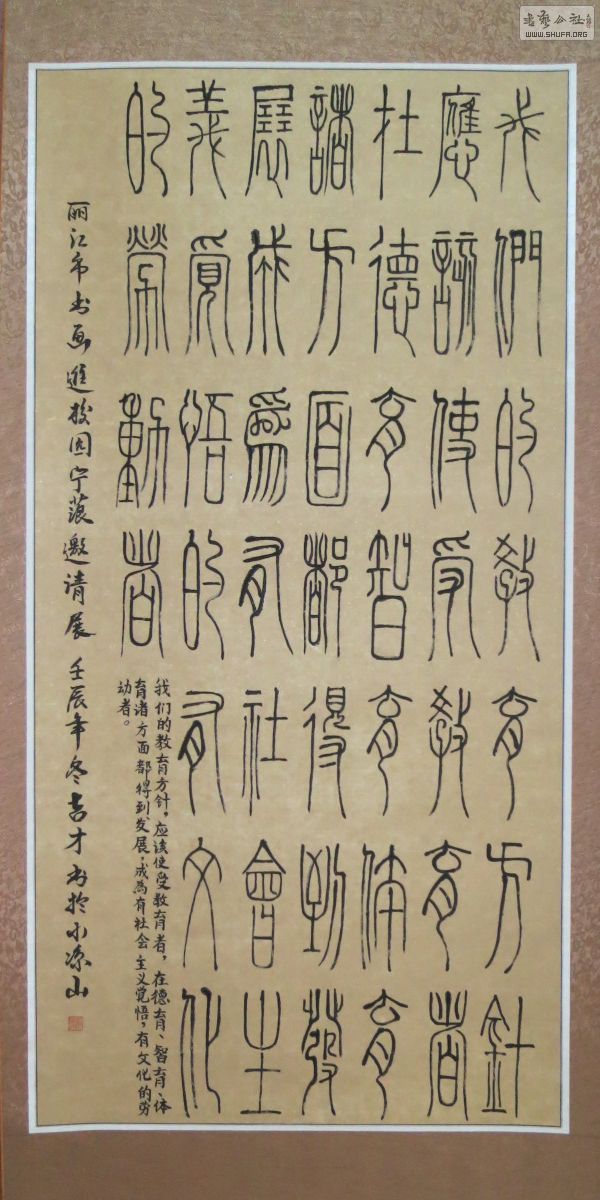 書藝公社
WWW.SHUFA.ORG
我們的教育方針
應該使受教育者
在德育智育体育
諸方面都得到發
展成為有社會主
義覺悟的有文化
的勞動者
我们的教育方针,应该使受教育者,在德育、智育、体
育诸方面都得到发展,成為有社会主义觉悟,有文化的劳
动者。
丽江市书画進校园宁蒗邀请展 壬辰年冬吉才书於小凉山